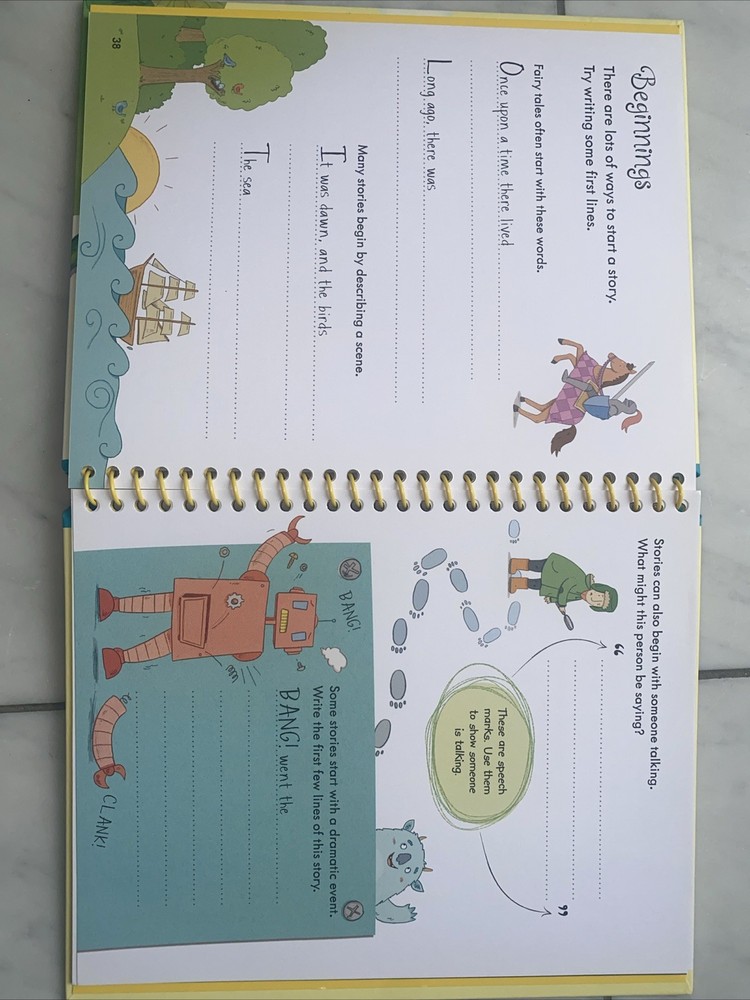 Beginnings
There are lots of ways to start a story.
Try writing some first lines.
Fairy tales often start with these words.
Once upon a time, there lived
Long ago, there was
Many stories begin by describing a scene.
It was dawn, and the birds
The sea
38
Stories can also begin with someone talking.
What might this person be saying?
“
”
These are speech
marks. Use them
to show someone
is talking.
BANG!
Some stories start with a dramatic event.
Write the first few lines of this story.
BANG! went the
CLANK!